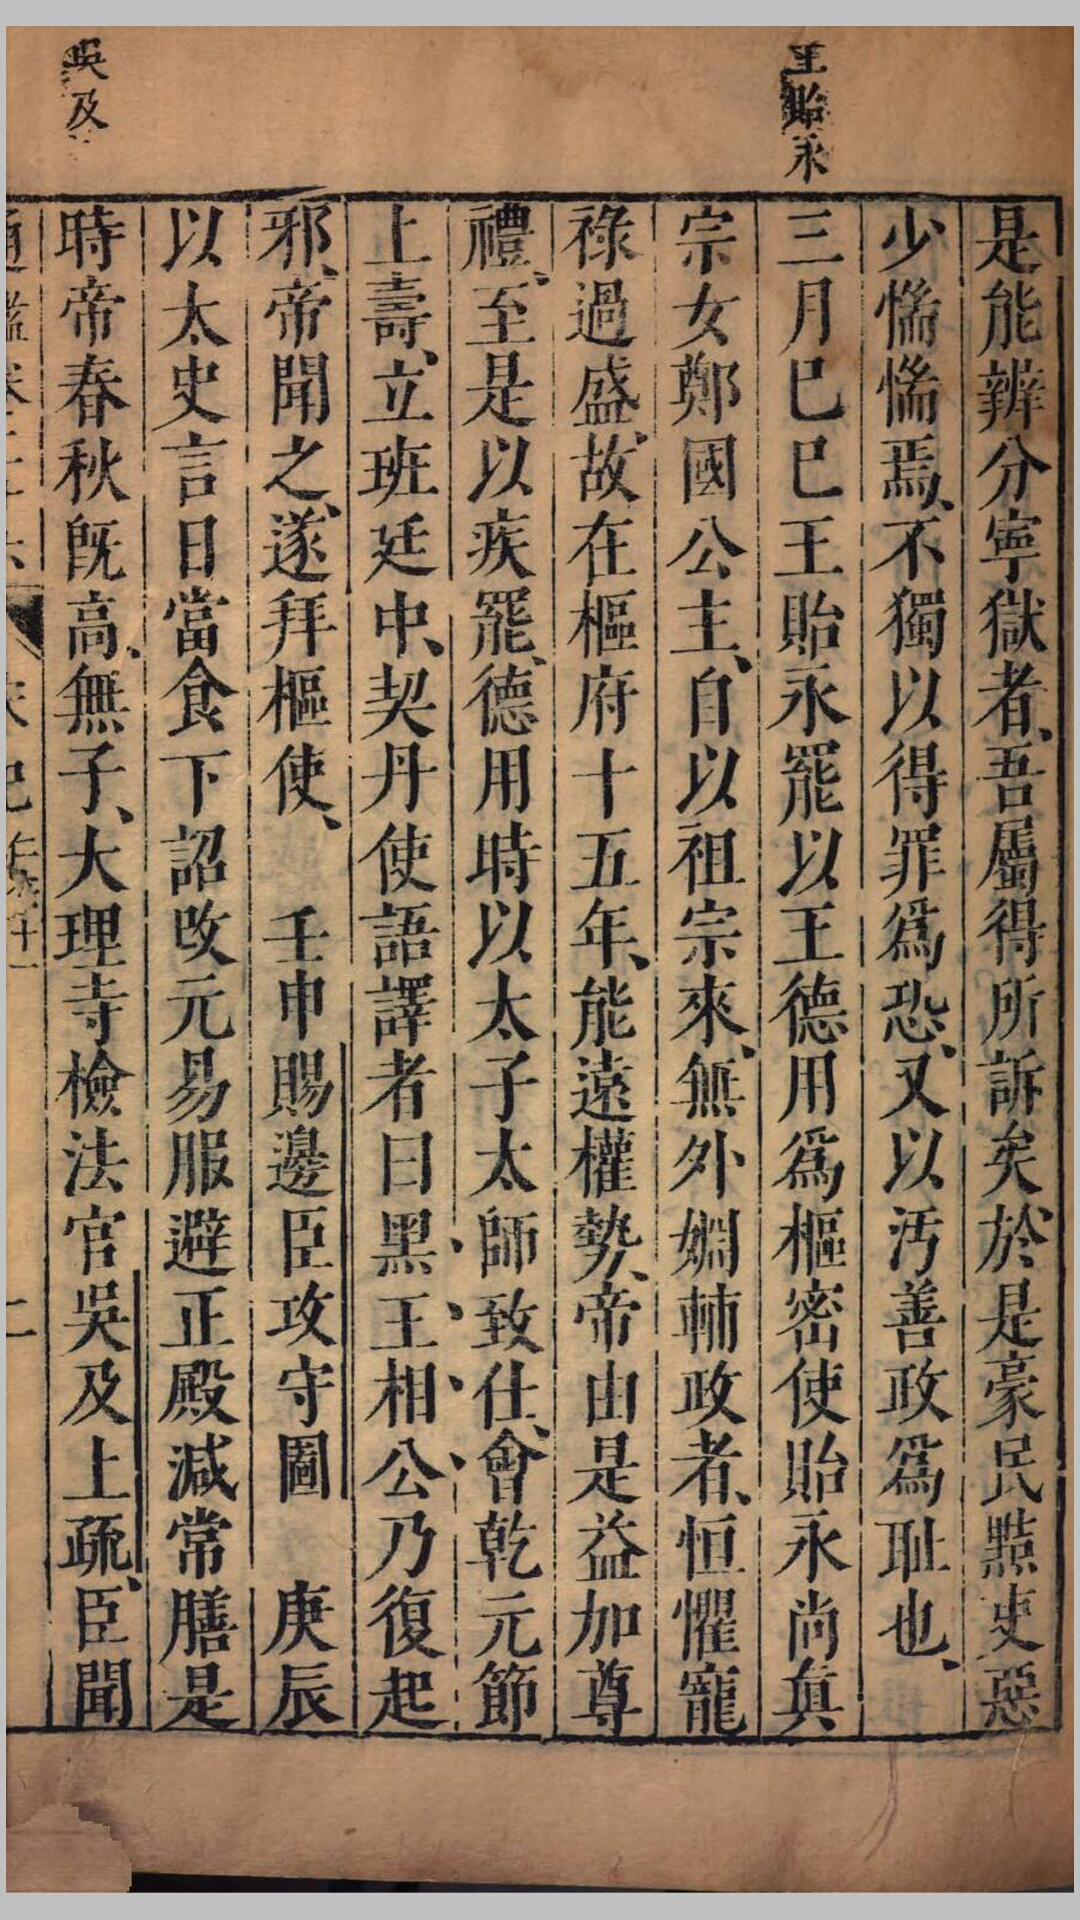 王貽永
吳及
是能辨分寧獄者吾屬得所訴矣於是豪民黠吏惡
少惴惴焉不獨以得罪爲恐又以汚善政爲耻也
三月巳巳王貽永罷以王德用爲樞密使貽永尚真
宗女鄭國公主自以祖宗來無外姻輔政者恒懼寵
祿過盛故在樞府十五年能遠權勢帝由是益加尊
禮至是以疾罷德用時以太子太師致仕會乾元節
上壽立班廷中契丹使語譯者曰黑王相公乃復起
邪帝聞之遂拜樞使　壬申賜邊臣攻守圖　庚辰
以太史言日當食下詔改元易服避正殿減常膳是
時帝春秋既高無子大理寺檢法官吳及上疏臣聞
二